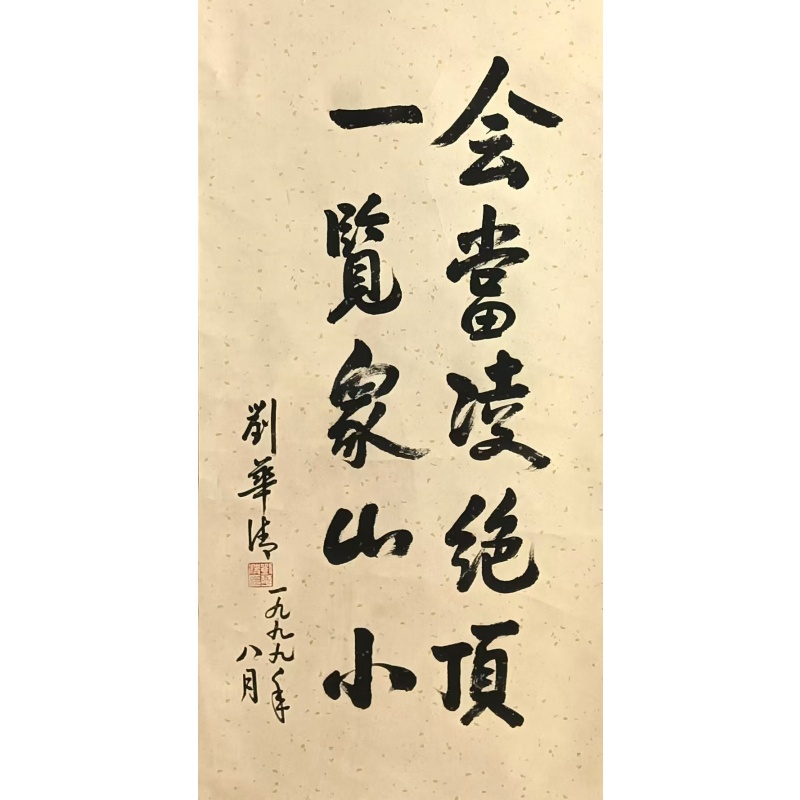 会當凌绝頂
一覽眾山小
劉華清
一九九九年
八月